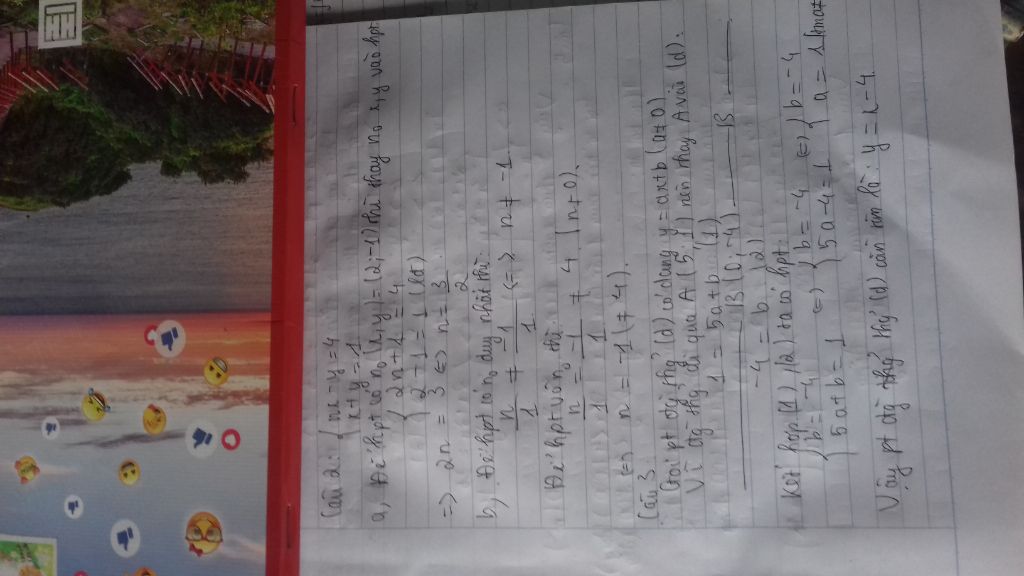 Câu 2: { nx - y = 4
{ x + y = 1
a, Để hpt có no (x, y) = (2, -1) thì thay no x, y vào hpt
{ 2n + 1 = 4
{ 2 - 1 = 1 (lđ)
=> 2n = 3 <=> n = 3/2
b, Để hpt có no duy nhất thì:
n/1 ≠ -1/1 <=> n ≠ -1
Để hpt vô no thì
n/1 = -1/1 ≠ 4
<=> n = -1 (≠ 4).
Câu 3.
Gọi pt đg thg (d) có dạng y = ax + b (a ≠ 0)
Vì đg thg đi qua A (5; 1) nên thay A vào (d):
1 = 5a + b (1)
B (0, -4) B
-4 = b (2)
Kết hợp (1), (2) ta có hpt:
{ b = -4 <=> { b = -4 <=> { b = -4
{ 5a + b = 1 { 5a - 4 = 1 { a = 1 (tmđk
Vậy pt đg thg (d) cần tìm là: y = x - 4.